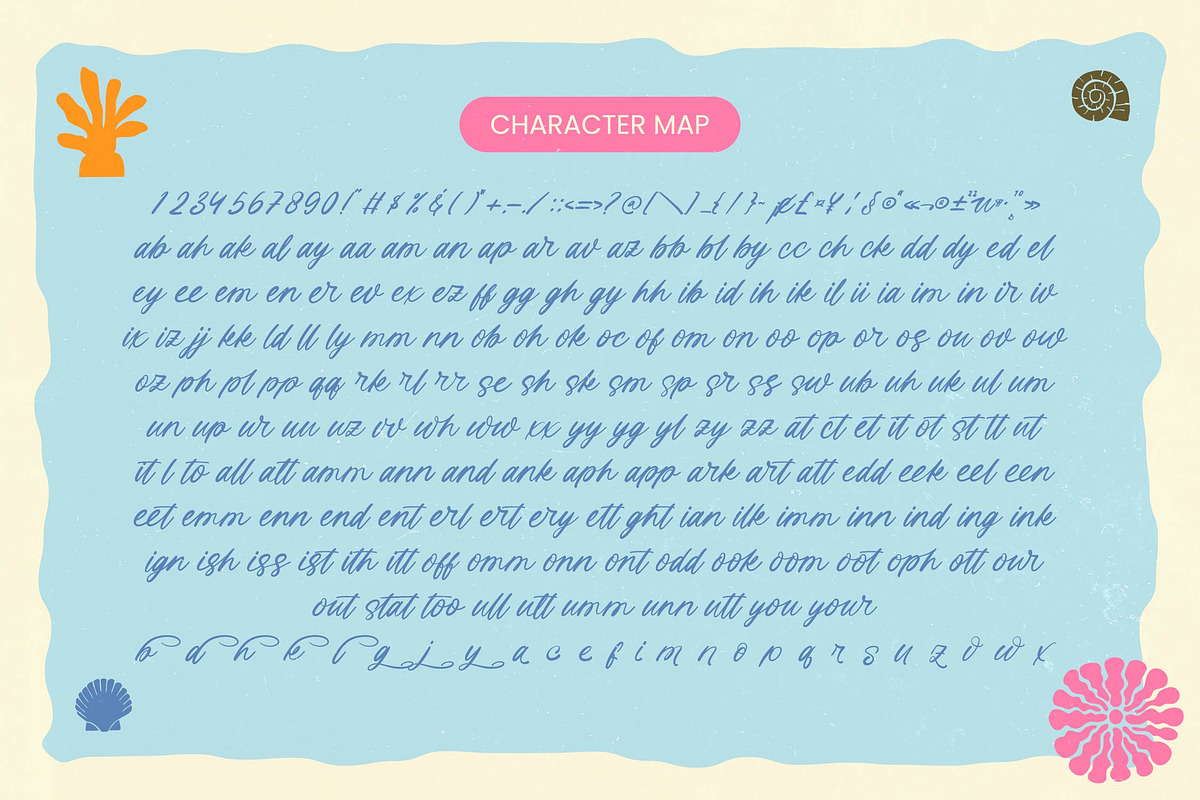 CHARACTER MAP
1234567890!"#$%&()*+,-./:;<=>?@[\]_{|}~
ab ah ak al ay aa am an ap ar av az bb bl by cc ch ck dd dy ed el
ey ee em en er ev ex ez ff gg gh gy hh ib id ih ik il ii ia im in ir iv
ix iz jj kk ld ll ly mm nn ob oh ok oc of om on oo op or os ou ov ow
oz ph pl pp qq rk rl rr se sh sk sm sp sr ss sw ub uh uk ul um
un up ur uu uz vv wh ww xx yy yg yl zy zz at ct et it ot st tt ut
it l to all att amm ann and ank aph app ark art att edd eek eel een
eet emm enn end ent erl ert ery ett ght ian ilk imm inn ind ing ink
ign ish iss ist ith itt off omm onn ont odd ook oom oot oph ott our
out stat too ull utt umm unn utt you your
b d h k l g j y a c e f i m n o p q r s u z v w x